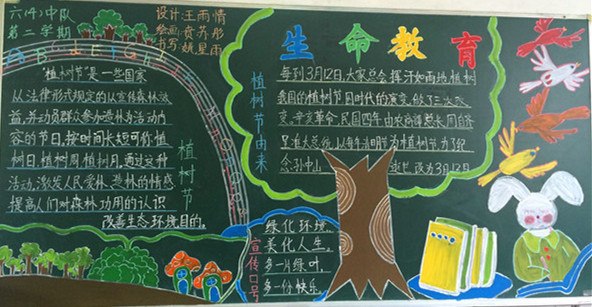 六(4)中队
第二学期
设计:王雨情
绘画:
书写:姚星雨
生命教育
"植树节"是一些国家
以法律形式规定的以宣传森林效
益,并动员群众参加造林为活动内
容的节日,按时间长短可称植
树日,植树周,植树月,通过这种
活动,激发人民爱林、造林的情感
提高人们对森林功用的认识
改善生态环境目的。
植树节
植树节由来
每到3月12日,大家总会挥汗如雨地植树
我国的植树节因时代的演变,
辛亥革命,民国四年由农商部
以每年清明节为植树节为了纪
念孙中山 逝世 改为3月12日
宣传口号
绿化环境,
美化人生。
多一片绿叶,
多一份快乐。